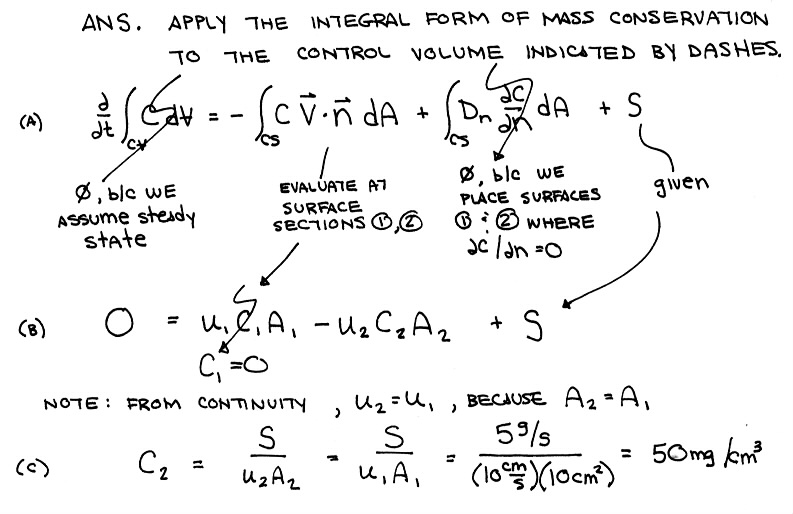 ANS. APPLY THE INTEGRAL FORM OF MASS CONSERVATION
TO THE CONTROL VOLUME INDICATED BY DASHES.
(A) d/dt ∫CV C dV = - ∫CS C V⃗·n⃗ dA + ∫CS Dn ∂C/∂n dA + S
Ø, b/c WE
ASSUME steady
state
EVALUATE AT
SURFACE
SECTIONS ①,②
Ø, b/c WE
PLACE SURFACES
① & ② WHERE
∂C/∂n = 0
given
(B) O = u₁C₁A₁ - u₂C₂A₂ + S
C₁=0
NOTE: FROM CONTINUITY, u₂=u₁, BECAUSE A₂=A₁
(C) C₂ = S/u₂A₂ = S/u₁A₁ = 5g/s/(10 cm/s)(10cm²) = 50mg/cm³